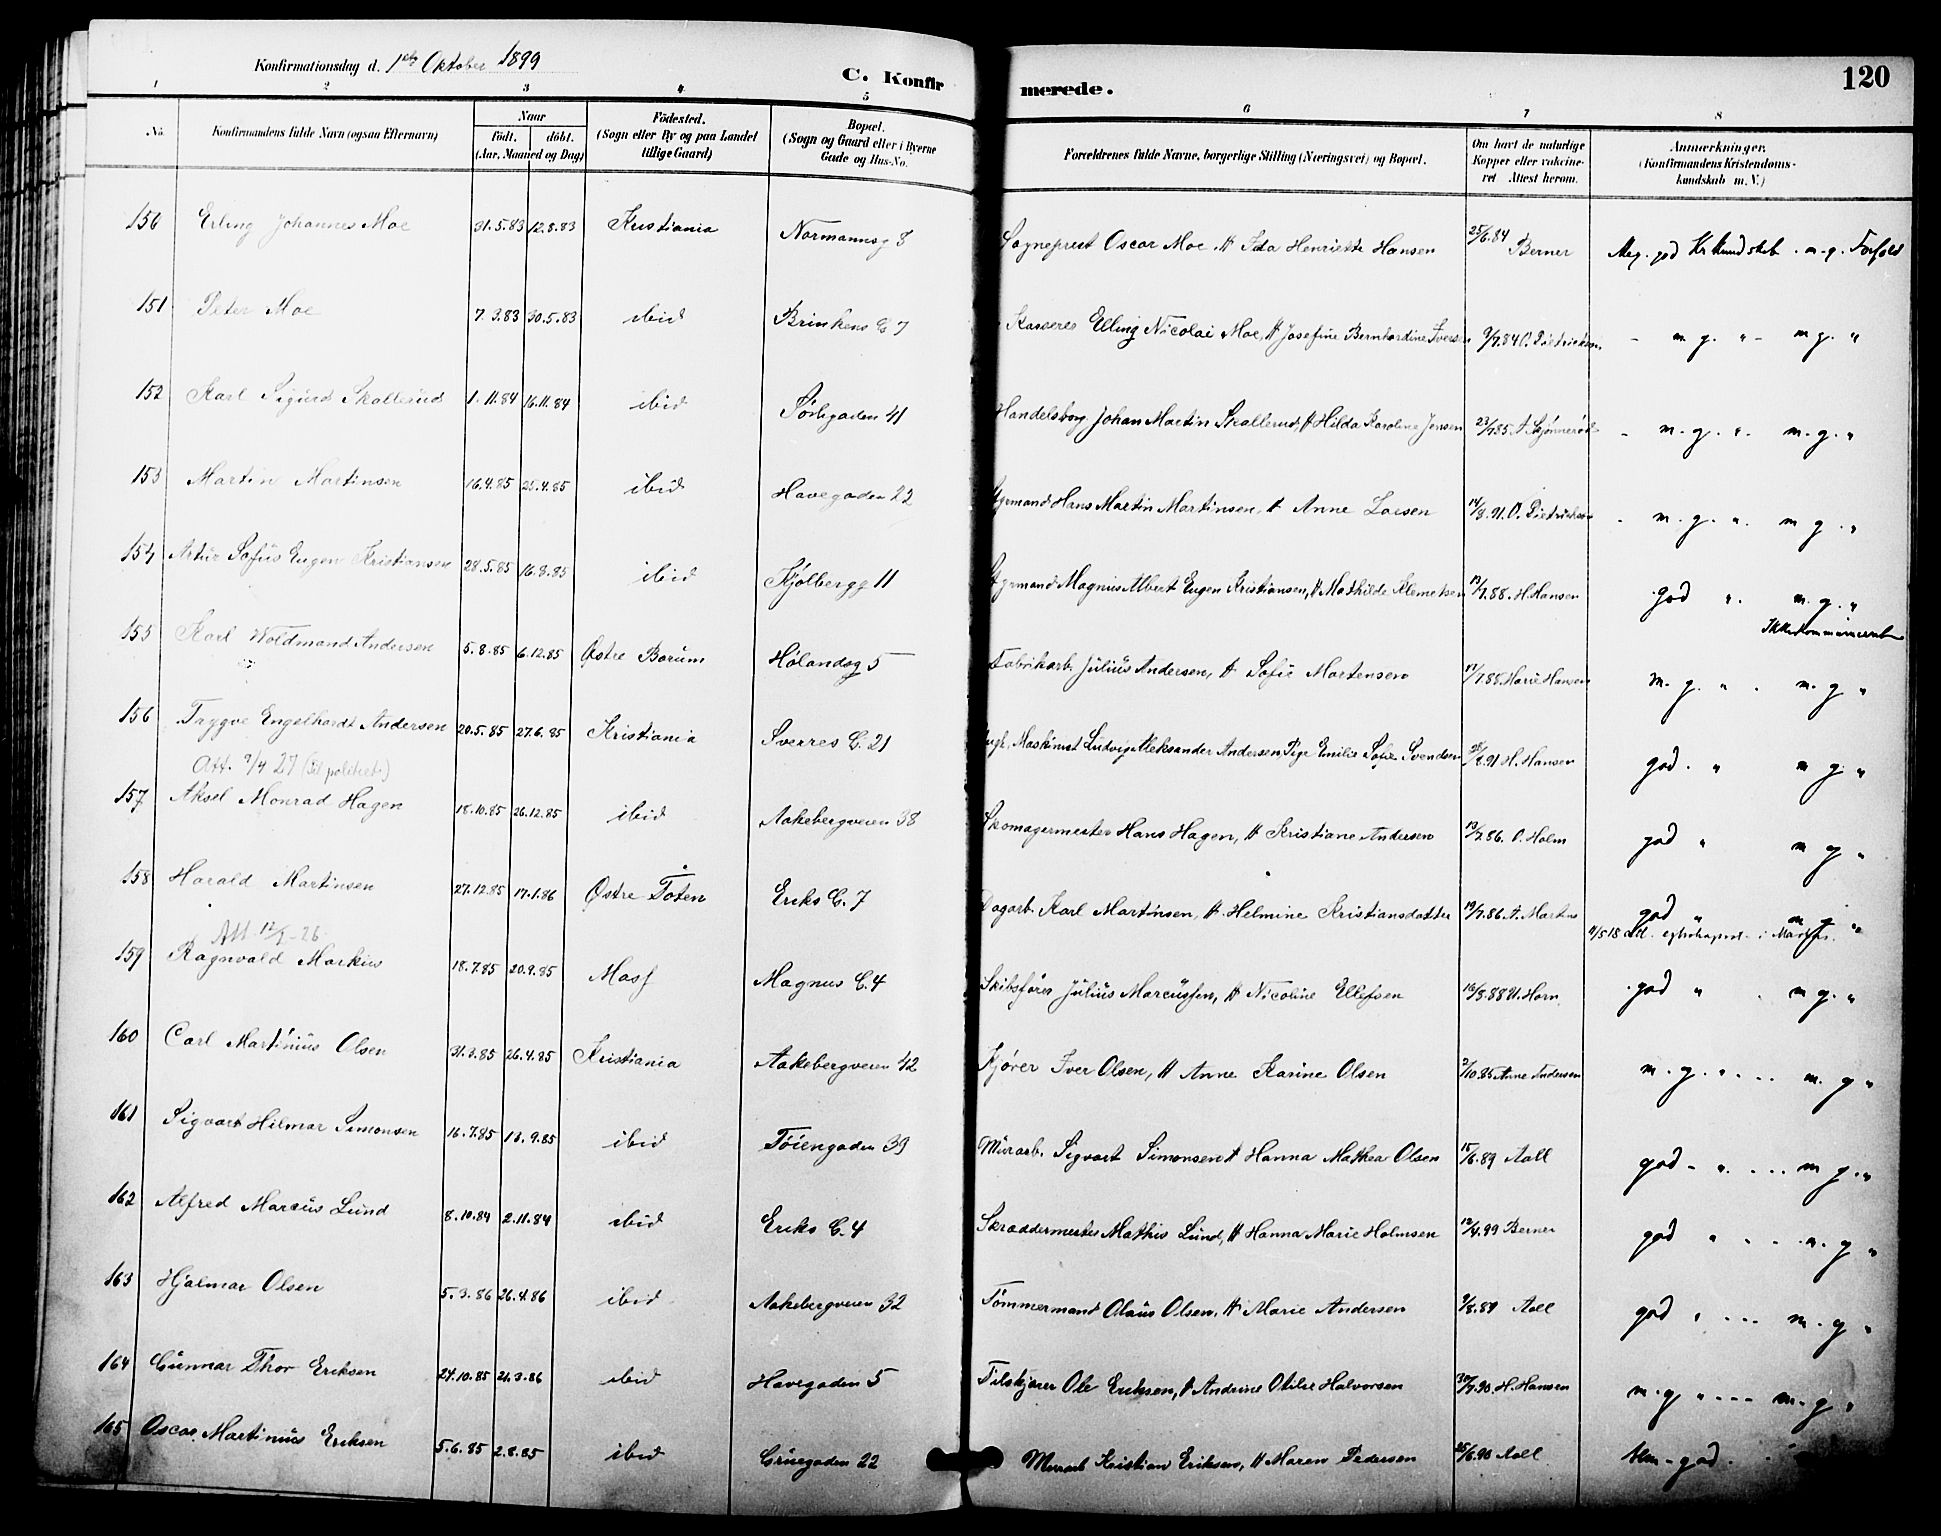 Konfirmationsdag d. 1ste Oktober 1899
C. Konfirmerede.
120
1 2 3 4 5 6 7 8
No. Konfirmandens fulde Navn (ogsaa Efternavn) Naar født. døbt. (Aar, Maaned og Dag) Fødested. (Sogn eller By og paa Landet tillige Gaard) Bopæl. (Sogn og Gaard eller i Byerne Gade og Hus-No. Forældrenes fulde Navne, borgerlige Stilling (Næringsvei) og Bopæl. Om havt de naturlige Kopper eller vaccineret Attest herom. Anmærkninger. (Konfirmandens Kristendomskundskab m. V.)
150 Erling Johannes Moe 31.5.83 12.8.83 Kristiania Normannsg 8 Sogneprest Oscar Moe, H Ida Henriette Hansen 25/6.84 Berner Meg. god Kr kundskab. m.g. Forhold
151 Peter Moe 7.3.83 30.5.83 ibid Brinkens G 7 Kasserer Elling Nicolai Moe, H Josefine Bernhardine Iversen 9/7.84 O. Dietrichson - m.g. " - m g. "
152 Karl Sigurd Skallerud 1.11.84 16.11.84 ibid Sørligaden 41 Handelsborg. Johan Martin Skallerud, H Hilda Karoline Jensen 23/7.85 A. Skjønnerød - m.g. ". m.g. "
153 Martin Martinsen 16.4.85 25.4.85 ibid Havegaden 22 Styrmand Hans Martin Martinsen, H Anne Larsen 14/8.91 O. Dietrichson - m.g. ". m g. "
154 Artur Sofus Eugen Kristiansen 28.5.85 16.8.85 ibid Kjølbergg 11 Styrmand Magnus Albert Eugen Kristiansen, H Mathilde Klemetsen 13/7.88. H. Hansen god ". m.g. "
Ikke
155 Karl Woldmand Andersen 5.8.85 6.12.85 Østre Bærum Hølandsg 5 Fabrikarb. Julius Andersen, H Sofie Martensen 17/7.88. Marie Hansen m.g. ". m.g "
156 Trygve Engelhardt Andersen 20.5.85 27.6.85 Kristiania Sverres G. 21 Ugh. Maskinist Ludvig Aleksander Andersen, Pige Emilie Sofie Svendsen 28/8.91 H. Hansen god. " m g. "
Att. 9/4 27 (til politiet)
157 Aksel Monrad Hagen 18.10.85 26.12.85 ibid Aakebergveien 38 Skomagermester Hans Hagen, H Kristiane Andersen 13/7.86. O. Holm god " m g "
158 Harald Martinsen 27.12.85 17.1.86 Østre Toten Eriks G. 7 Dagarb. Karl Martinsen, H. Helmine Kristiansdatter 19/7.86 A. Martens god " m g "
Att 12/2-26
159 Ragnvald Markus 18.7.85 20.9.85 Moss Magnus G. 4 Skibsfører Julius Marcussen, H Nicoline Ellefsen 16/8.88 U. Horn god " . m g. "
160 Carl Martinius Olsen 31.3.85 26.4.85 Kristiania Aakebergveien 42 Kjører Iver Olsen, H Anne Karine Olsen 2/10.85 Anne Andersen m.g. ". ... m.g "
161 Sigvart Hilmar Simonsen 16.7.85 13.9.85 ibid Tøiengaden 39 Murarb. Sigvart Simonsen H Hanna Mathea Olsen 15/6.89 Aall god - ". ... m g. "
162 Alfred Marcus Lund 8.10.84 2.11.84 ibid Eriks G. 4 Skræddermester Mathis Lund, H Hanna Marie Holmsen 12/4.99 Berner god " ... m.g "
163 Hjalmar Olsen 5.3.86 26.4.86 ibid Aakebergveien 32 Tømmermand Olaus Olsen, H Marie Andersen 9/8.89 Aall god " ... m.g "
164 Gunnar Thor Eriksen 24.10.85 21.3.86 ibid Havegaden 5 Filskjærer Ole Eriksen, H Andrine Otilie Halvorsen 30/7.90 H. Hansen m.g " ... m.g "
165 Oscar Martinius Eriksen 5.6.85 2.8.85 ibid Grüegaden 22 Murarb Kristian Eriksen, H Maren Pedersen 25/6.90 Aall god.